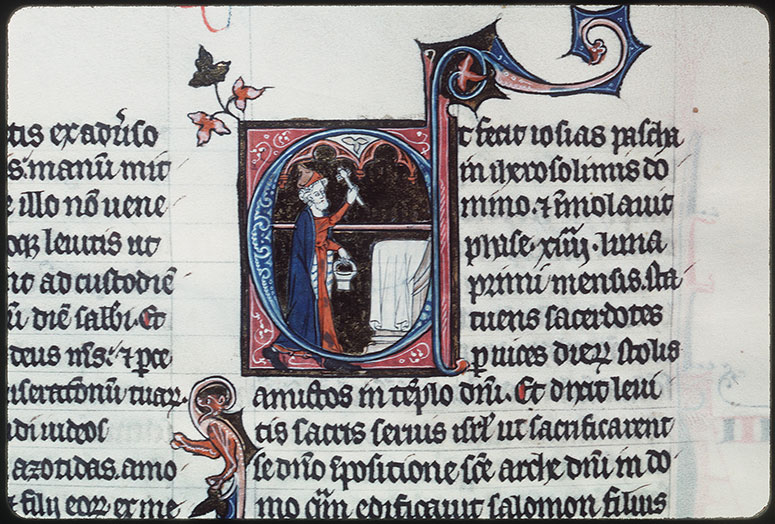 tis ex adũso
s. manū mit
e illo nō uene
oqꝫ leuitis ut
nt ad custodiē
ū diē sabbi. Et
deus nr̄: ⁊ pce
iserationū tuaꝝ
udi iudeos
azotidas. amo
⁊ filij eoꝝ ex me
Et fecit iosias pascha
in iherosolimis do
mino. ⁊ īmolauit
phase .xiiij. luna
primi mensis. sta
tuens sacerdotes
ꝑ uices dieꝝ stolis
amictos in tēplo dn̄i. Et dixit leui
tis sacris seruis isrl̄ ut sacrificarent
se dn̄o ī positione sc̄e arche dn̄i in do
mo qm̄ edificauit salomon filius